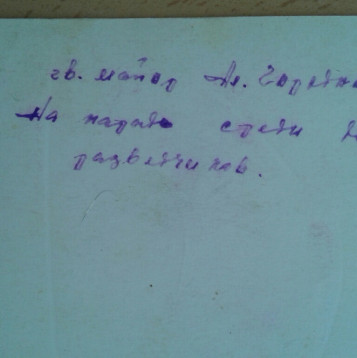 гв. майор Ал.
На параде среди
разведчиков.